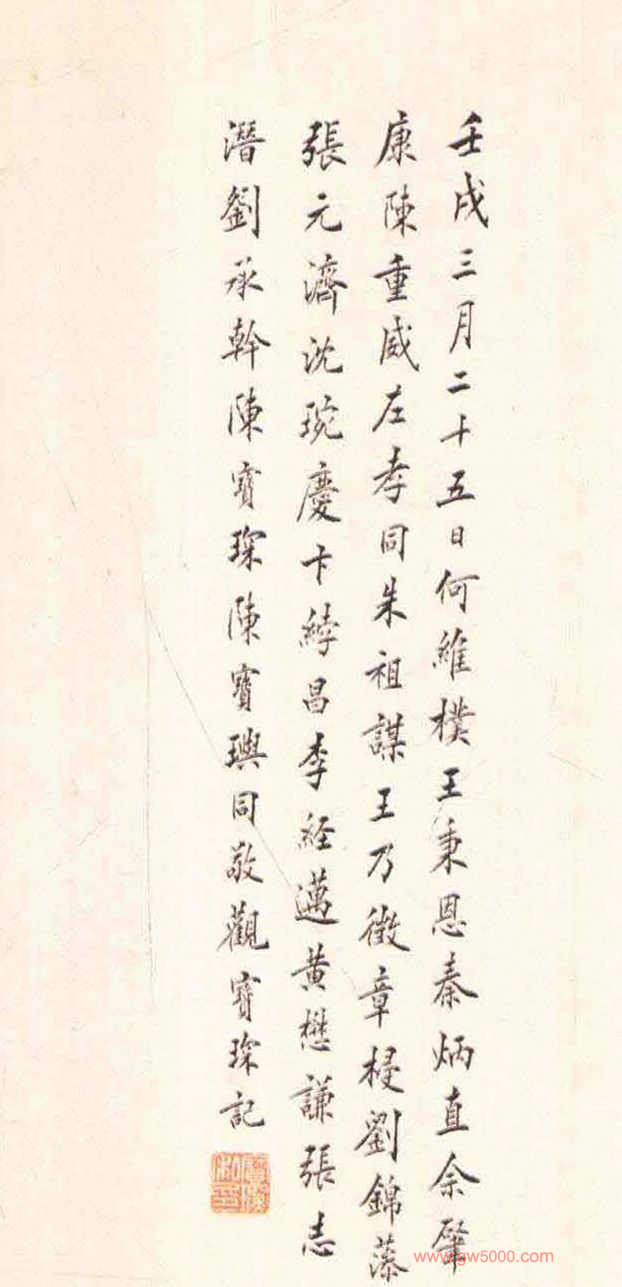 壬戌三月二十五日何維樸王秉恩秦炳直余肇
康陳重威左孝同朱祖謀王乃徵章梫劉錦藻
張元濟沈琬慶卞綍昌李經邁黃懋謙張志
潛劉承幹陳寶琛陳寶璵同敬觀寶琛記
www.gw5000.com